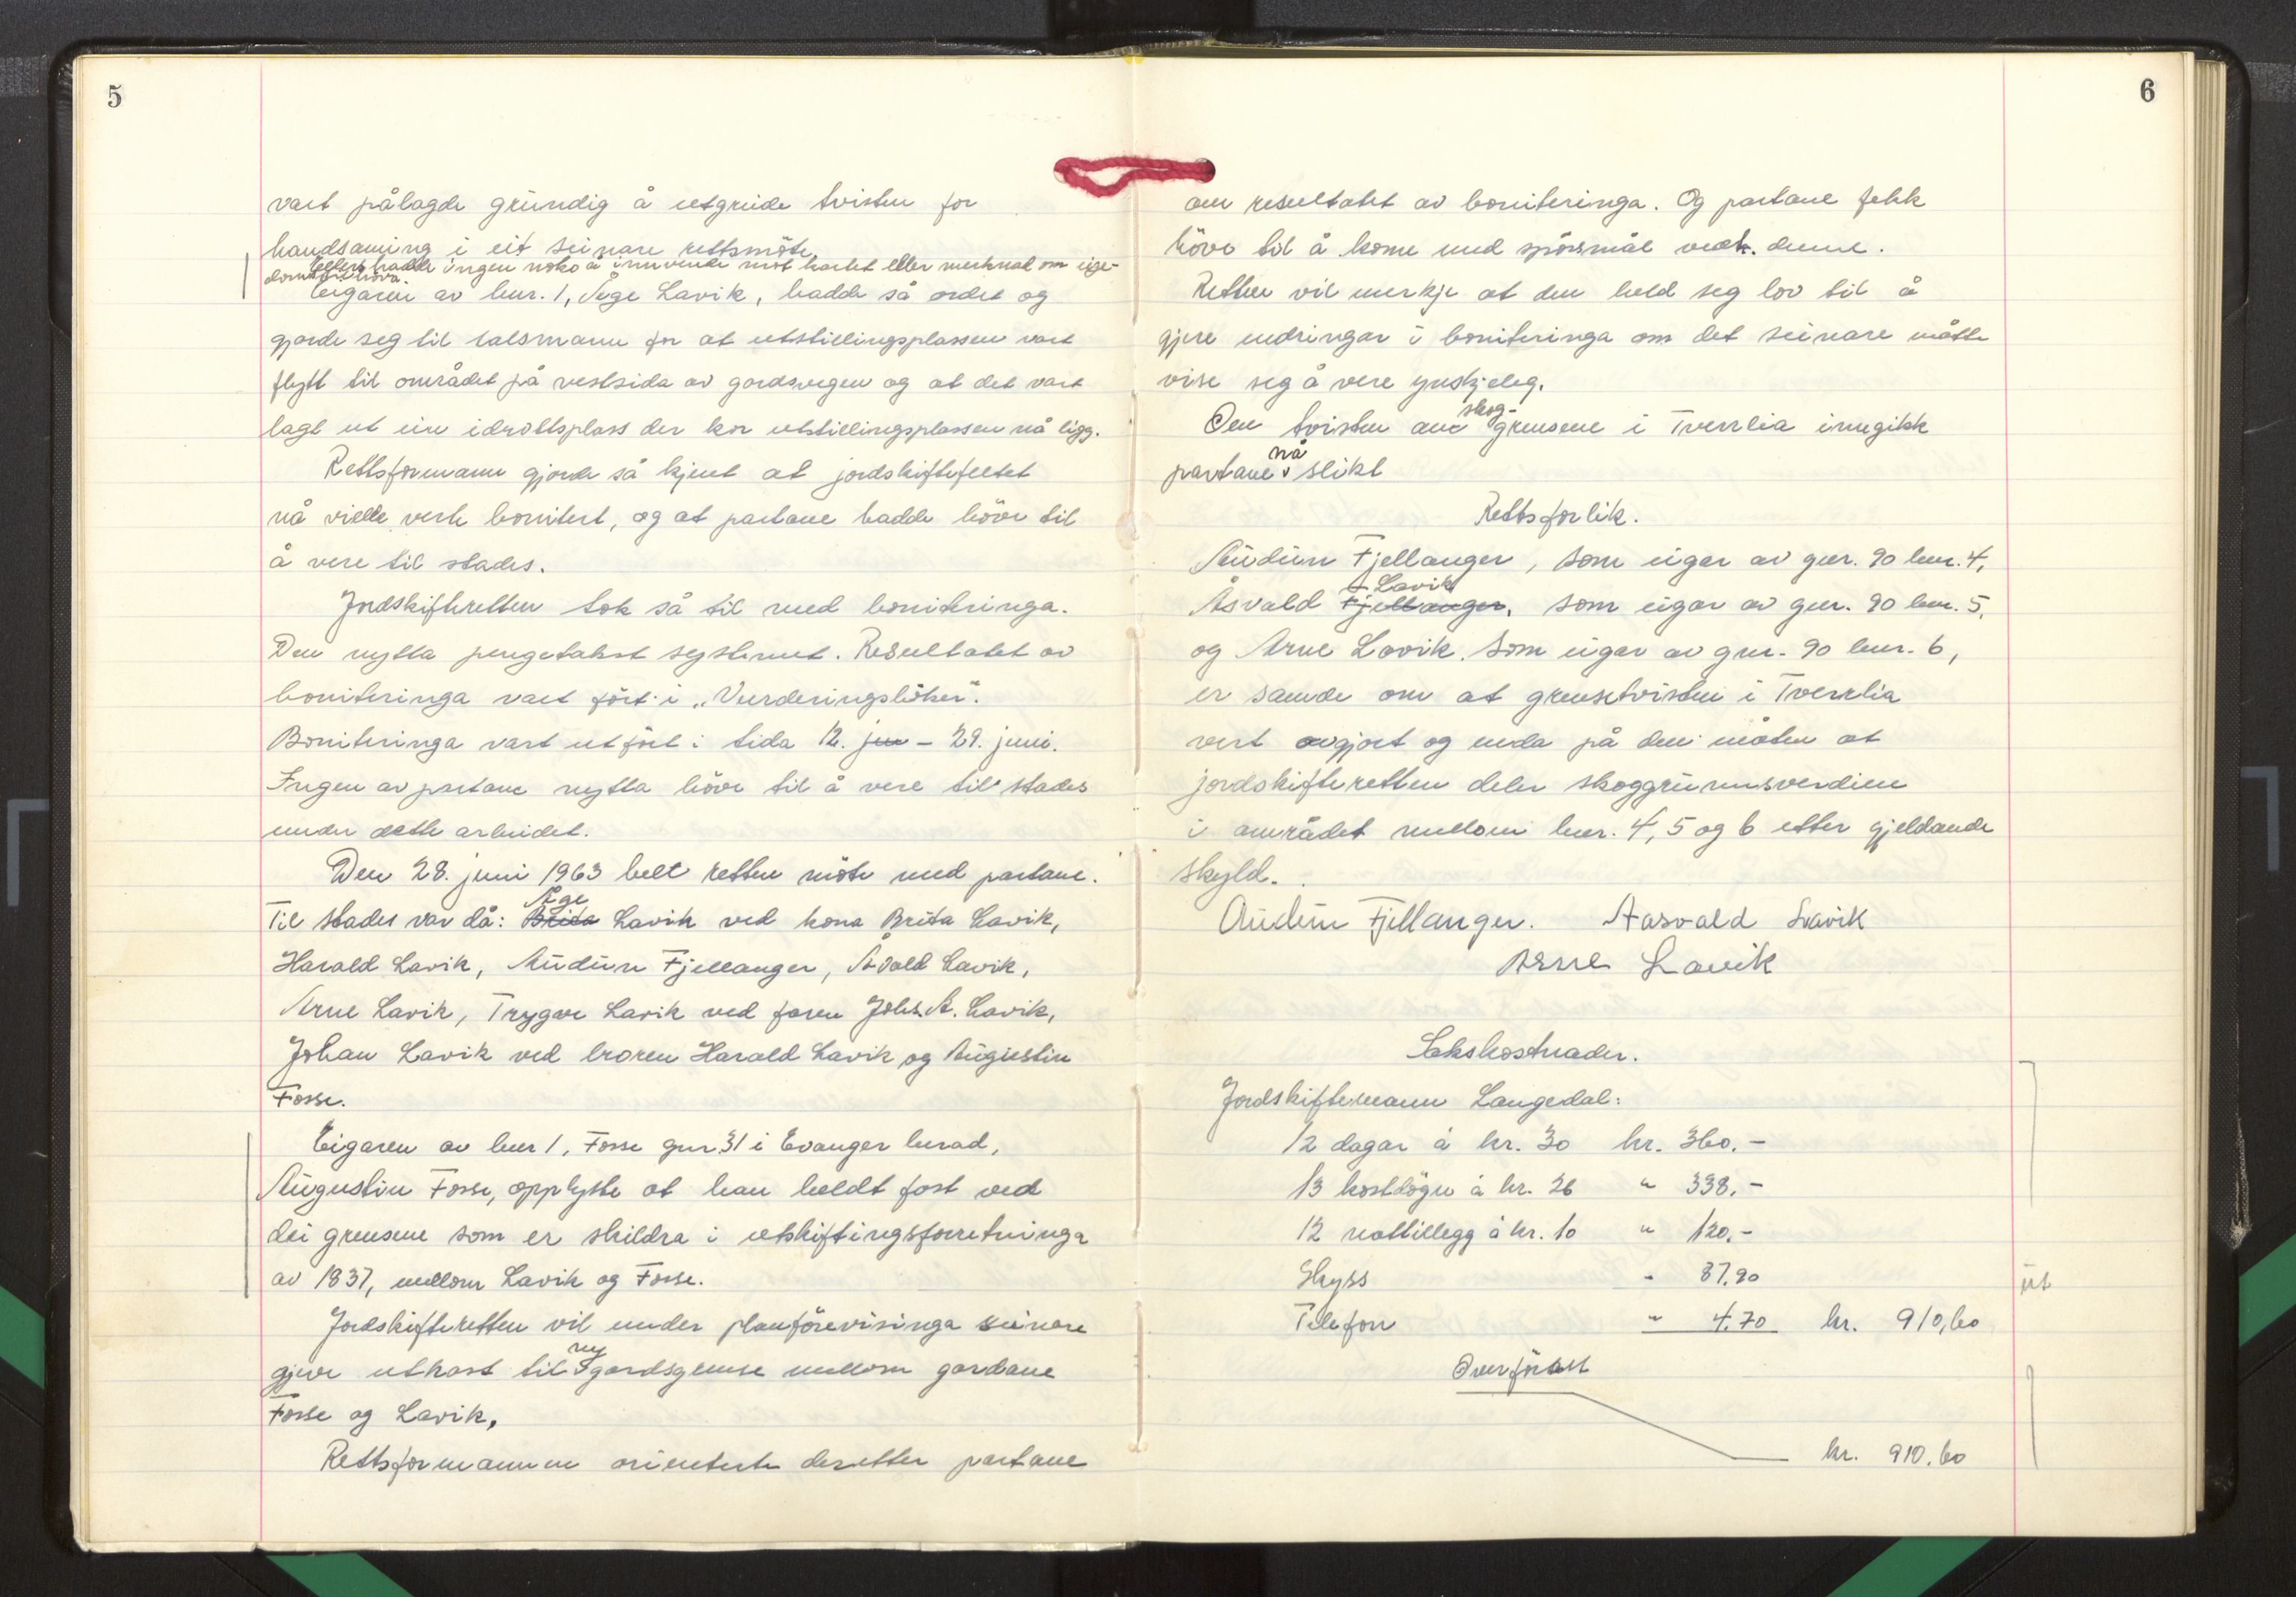 5
vart pålagde grundig å utgreide tvisten for
handsaming i eit seinare rettsmöte.
Ellers hadde ingen noko å innvende mot kartet eller merknad om eige-
domstilhöva.
Eigaren av bnr. 1, Åge Lavik, hadde så ordet og
gjorde seg til talsmann for at utstillingsplassen vart
flytt til området på vestsida av gardsvegen og at det vart
lagt ut ein idrottsplass der kor utstillingsplassen nå ligg.
Rettsformann gjorde så kjent at jordskiftefeltet
nå ville verte bonitert, og at partane hadde höve til
å vere til stades.
Jordskifteretten tok så til med boniteringa.
Den nytta pengetakst systemet. Resultatet av
boniteringa vart fört i „Vurderingsböker".
Boniteringa vart utfört i tida 12. jun - 29. juni.
Ingen av partane nytta höve til å vere til stades
under dette arbeidet.
Den 28. juni 1963 helt retten möte med partane.
Åge
Til stades var då: Brita Lavik ved kona Brita Lavik,
Harald Lavik, Audun Fjellanger, Åsvald Lavik,
Arne Lavik, Trygve Lavik ved faren Johs. A. Lavik,
Johan Lavik ved broren Harald Lavik og Augustin
Fosse.
Eigaren av bnr 1, Fosse gnr. 31 i Evanger herad,
Augustin Fosse, opplyste at han heldt fast ved
dei grensene som er skildra i utskiftingsforretninga
av 1837, mellom Lavik og Fosse.
Jordskifteretten vil under planförevisinga seinare
ny
gjere utkast til gardsgrense mellom gardane
Fosse og Lavik.
Rettsformannen orienterte deretter partane
6
om resultatet av boniteringa. Og partane fekk
höve til å kome med spörsmål vedk. denne.
Retten vil merkje at den held seg lov til å
gjere endringar i boniteringa om det seinare måtte
vise seg å vere ynskjeleg.
skog-
Om tvisten om grensene i Tverrlia inngikk
nå
partane slikt
Rettsforlik.
Audun Fjellanger, som eigar av gnr. 90 bnr. 4,
Lavik
Åsvald Fjellanger, som eigar av gnr. 90 bnr. 5,
og Arne Lavik som eigar av gnr. 90 bnr. 6,
er samde om at grensetvisten i Tverrlia
vert avgjort og enda på den måten at
jordskifteretten deler skoggrunnsverdien
i området mellom bnr. 4, 5 og 6 etter gjeldande
skyld.
Audun Fjellanger. Aasvald Lavik
Arne Lavik
Sakskostnader.
Jordskiftemann Langedal:
12 dagar à kr. 30 kr. 360.-
13 kostdögn à kr. 26 " 338.-
12 nattillegg à kr. 10 " 120.-
Skyss " 87.90
üt
Telefon " 4.70 kr. 910,60
Overfört
kr. 910.60